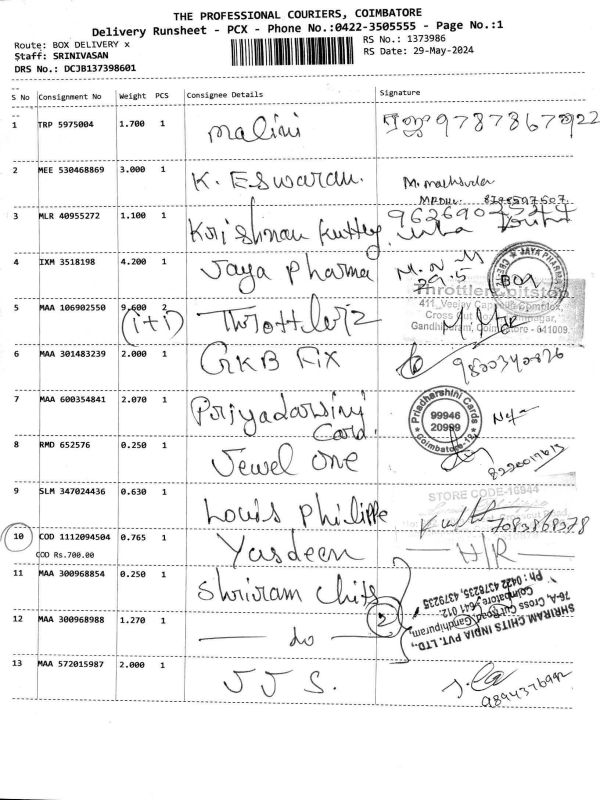 THE PROFESSIONAL COURIERS, COIMBATORE
Delivery Runsheet - PCX - Phone No.:0422-3505555 - Page No.:1
Route: BOX DELIVERY x
RS No.: 1373986
Staff: SRINIVASAN
RS Date: 29-May-2024
DRS No.: DCJB137398601
S No Consignment No Weight PCS Consignee Details Signature
1 TRP 5975004 1.700 1 Malini
2 MEE 530468869 3.000 1 K. Eswaran.
3 MLR 40955272 1.100 1 Krishnan Kutty
4 IXM 3518198 4.200 1 Jaya Pharma M. N. M
29.5 BOA
JAYA PHARMA
5 MAA 106902550 9.600 2 Throttlerz
(1+1)
Throttlerz bitstop
411, Complex,
Cross Cut
Gandhipuram, Coimbatore - 641009.
6 MAA 301483239 2.000 1 GKB Fix
7 MAA 600354841 2.070 1 Priyadarsini
Card.
Priadharshini Cards
99946
20999
Coimbatore-12
8 RMD 652576 0.250 1 Jewel One
9 SLM 347024436 0.630 1 Louis Philippe
STORE CODE-16944
7083868378
10 COD 1112094504 0.765 1 Yasdeen H/R
COD Rs.700.00
11 MAA 300968854 0.250 1 Shriram Chits
12 MAA 300968988 1.270 1 do 2
SHRIRAM CHITS INDIA PVT. LTD.,
76-A, Cross Cut Road, Gandhipuram,
Coimbatore - 641 012.
Ph : 0422 4378235, 4379235
13 MAA 572015987 2.000 1 J J S.
9894376992